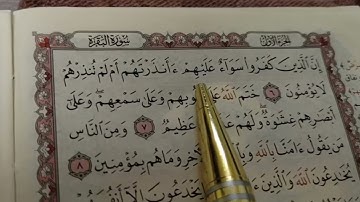 سورة البقرة الجزء الأول
إِنَّ الَّذِينَ كَفَرُوا سَوَاءٌ عَلَيْهِمْ ءَأَنذَرْتَهُمْ أَمْ لَمْ تُنذِرْهُمْ
لَا يُؤْمِنُونَ ٦ خَتَمَ اللَّهُ وبِهِمْ وَعَلَىٰ سَمْعِهِمْ وَعَلَىٰ
أَبْصَارِهِمْ غِشَاوَةٌ وَلَهُمْ عَظِيمٌ ٧ وَمِنَ النَّاسِ
مَن يَقُولُ ءَامَنَّا بِاللَّهِ وَمَا هُم بِمُؤْمِنِينَ ٨
يُخَادِعُونَ اللَّهَ وَالَّذِينَ يَخْدَعُونَ إِلَّا